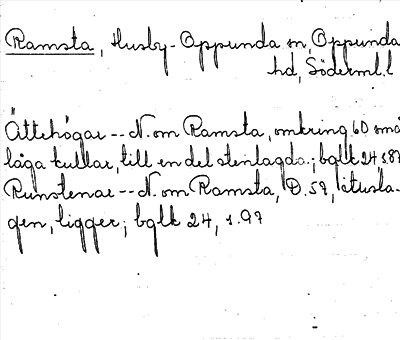 Ramsta, Husby-Oppunda sn, Oppunda
hd, Söderml.l
Ättehögar -- N. om Ramsta, omkring 60 små
låga kullar, till en del stenlagda.; bglk 24 s.87
Runstenar -- N. om Ramsta, D.59, itusla-
gen, ligger; bglk 24, s.97